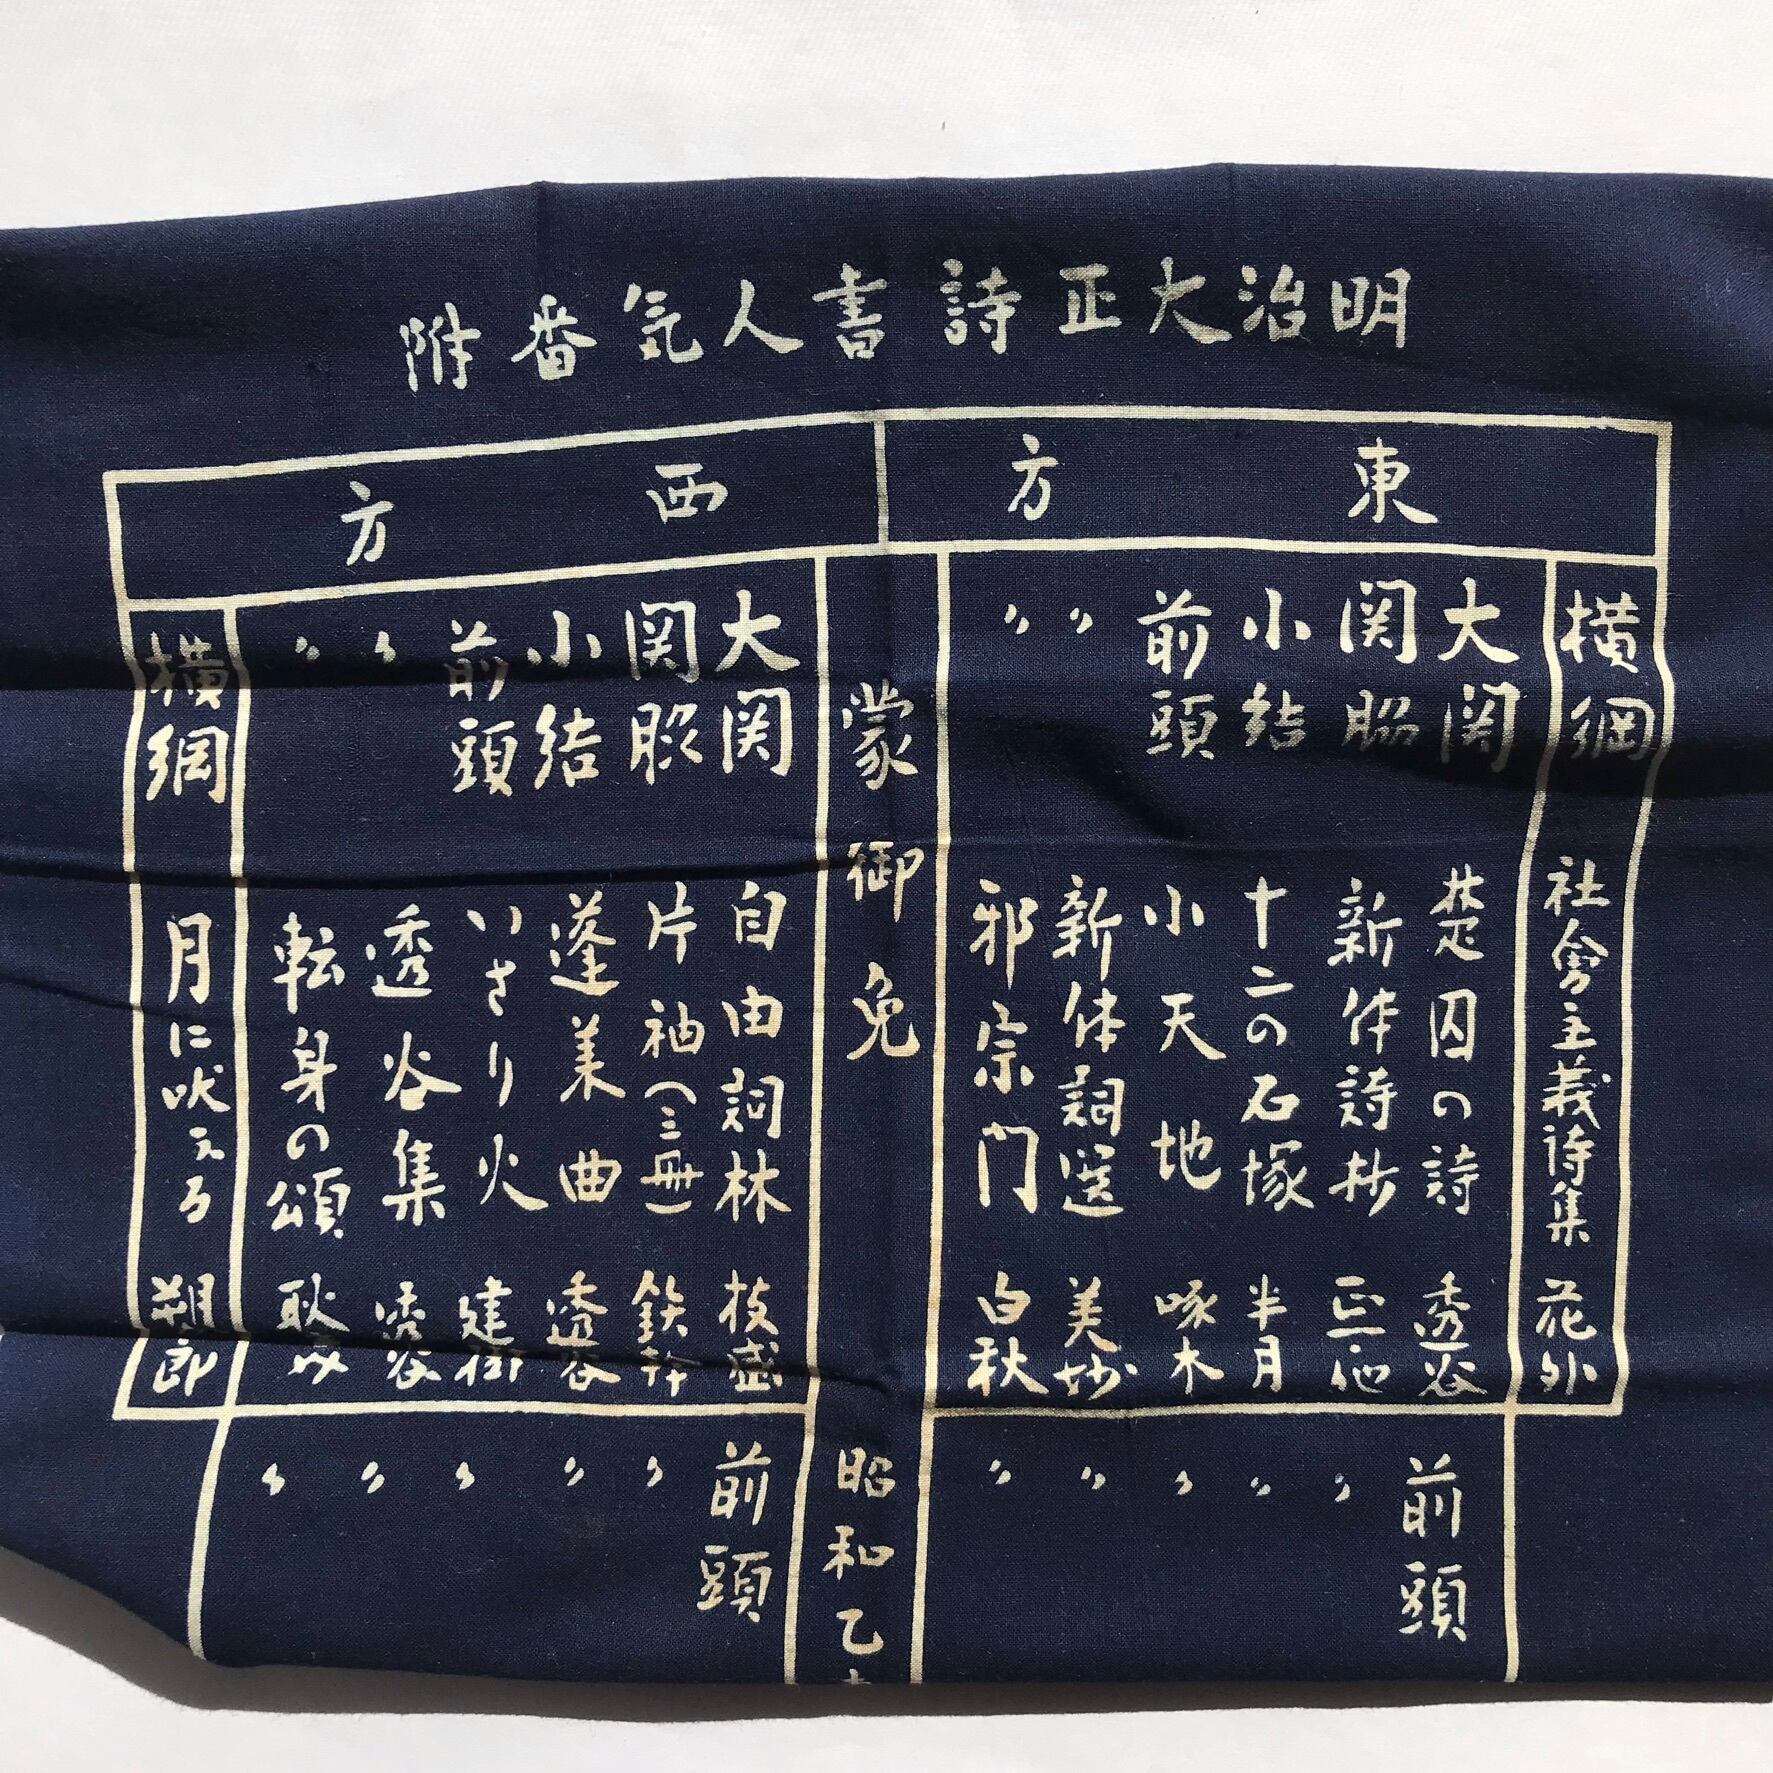 明治大正詩書人気番附
東方
横綱 社會主義詩集 花外
大関 楚囚の詩 透谷
関脇 新体詩抄 正一他
小結 十二の石塚 半月
前頭 小天地 啄木
〃 新体詞選 美妙
〃 邪宗門 白秋
蒙御免
西方
大関 自由詞林 枝盛
関脇 片袖(三冊) 鉄幹
小結 蓬莱曲 透谷
前頭 いさり火 建樹
〃 透谷集 透谷
〃 転身の頌 耿之介
横綱 月に吠える 朔郎
前頭 〃 〃 〃 〃 〃
昭和乙
前頭 〃 〃 〃 〃 〃